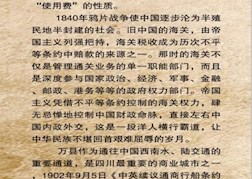 “使用费”的性质。
1840年鸦片战争使中国逐步沦为半殖
民地半封建的社会。旧中国的海关，由帝
国主义列强把持，海关税收成为历次不平
等条约中赔款的来源之一。那时的海关不
仅是管理通关业务的单一职能部门，而且
是深度参与国家政治、经济、军事、金融
、邮政、港务等等的政府权力部门。帝国
主义凭借不平等条约控制的海关权力，肆
无忌惮地控制中国财政命脉，直接左右中
国内政外交，这是一段洋人横行霸道，让
中华民族不堪回首艰难屈辱的岁月。
万县作为通往中国西南水、陆交通的
重要通道，是四川最重要的商业城市之一，
1902年9月5日《中英续议通商行船条约